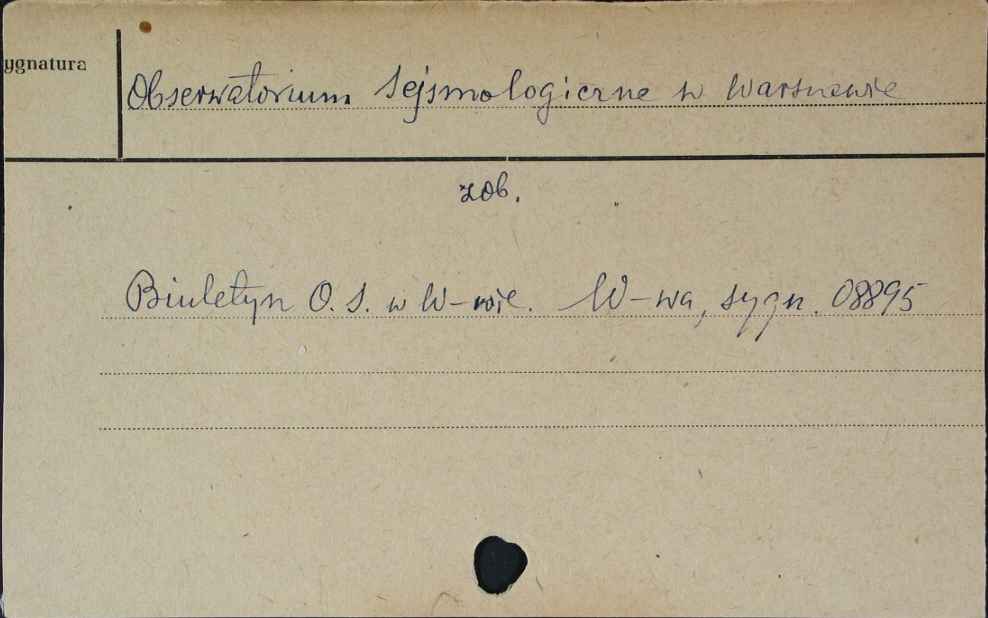 ygnatura
Obserwatorium Sejsmologiczne w Warszawie
zob.
Biuletyn O. S. w W-wie. W-wa, sygn. 08895